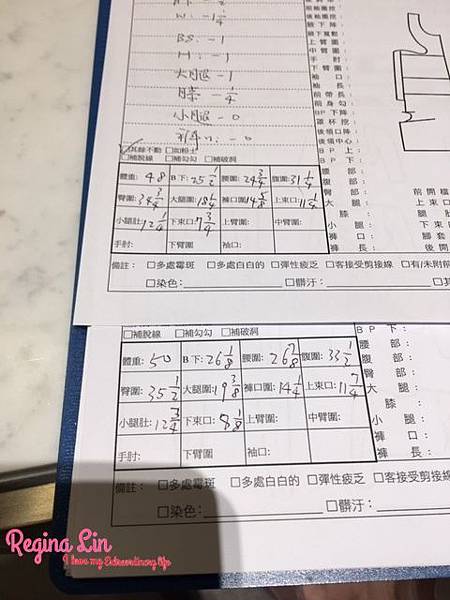 W: -1 1/4
BS: -1
H: -1
大腿 -1
膝 -1/4
小腿 -0
□其餘不動 □如粉土
□補脫線 □補勾勾 □補破洞
體重: 48 B下: 25 1/2 腰圍: 24 3/4 腹圍: 31 1/4
臀圍: 34 3/4 大腿圍: 18 1/4 褲口圍: 14 1/8 上束口: 11 1/4
小腿肚: 12 1/4 下束口: 7 3/4 上臂圍: 中臂圍:
手肘: 下臂圍 袖口:
備註: □多處霉斑 □多處白白的 □彈性疲乏 □客接受剪接線 □有/未附前
□染色: □髒汙:
上臂圍:
中臂圍:
手肘:
下臂圍:
袖口:
袖長:
前帶長:
前身勾:
B P 下降:
罩杯挖:
後領口降:
後領中心:
B P 上:
B P 下:
腰部:
腹部:
臀部:
大腿:
膝:
小腿:
褲口:
褲長:
前開檔
上束口
腿肚
下束口
腳套
後開
□補脫線 □補勾勾 □補破洞
體重: 50 B下: 26 1/8 腰圍: 26 7/8 腹圍: 33 1/2
臀圍: 35 1/2 大腿圍: 19 3/8 褲口圍: 14 1/4 上束口: 11 7/8
小腿肚: 12 3/4 下束口: 8 1/8 上臂圍: 中臂圍:
手肘: 下臂圍 袖口:
備註: □多處霉斑 □多處白白的 □彈性疲乏 □客接受剪接線
□染色: □髒汙:
BP下:
腰部:
腹部:
臀部:
大腿:
膝:
小腿:
褲口:
褲長:
Regina Lin
I love my Extraordinary life